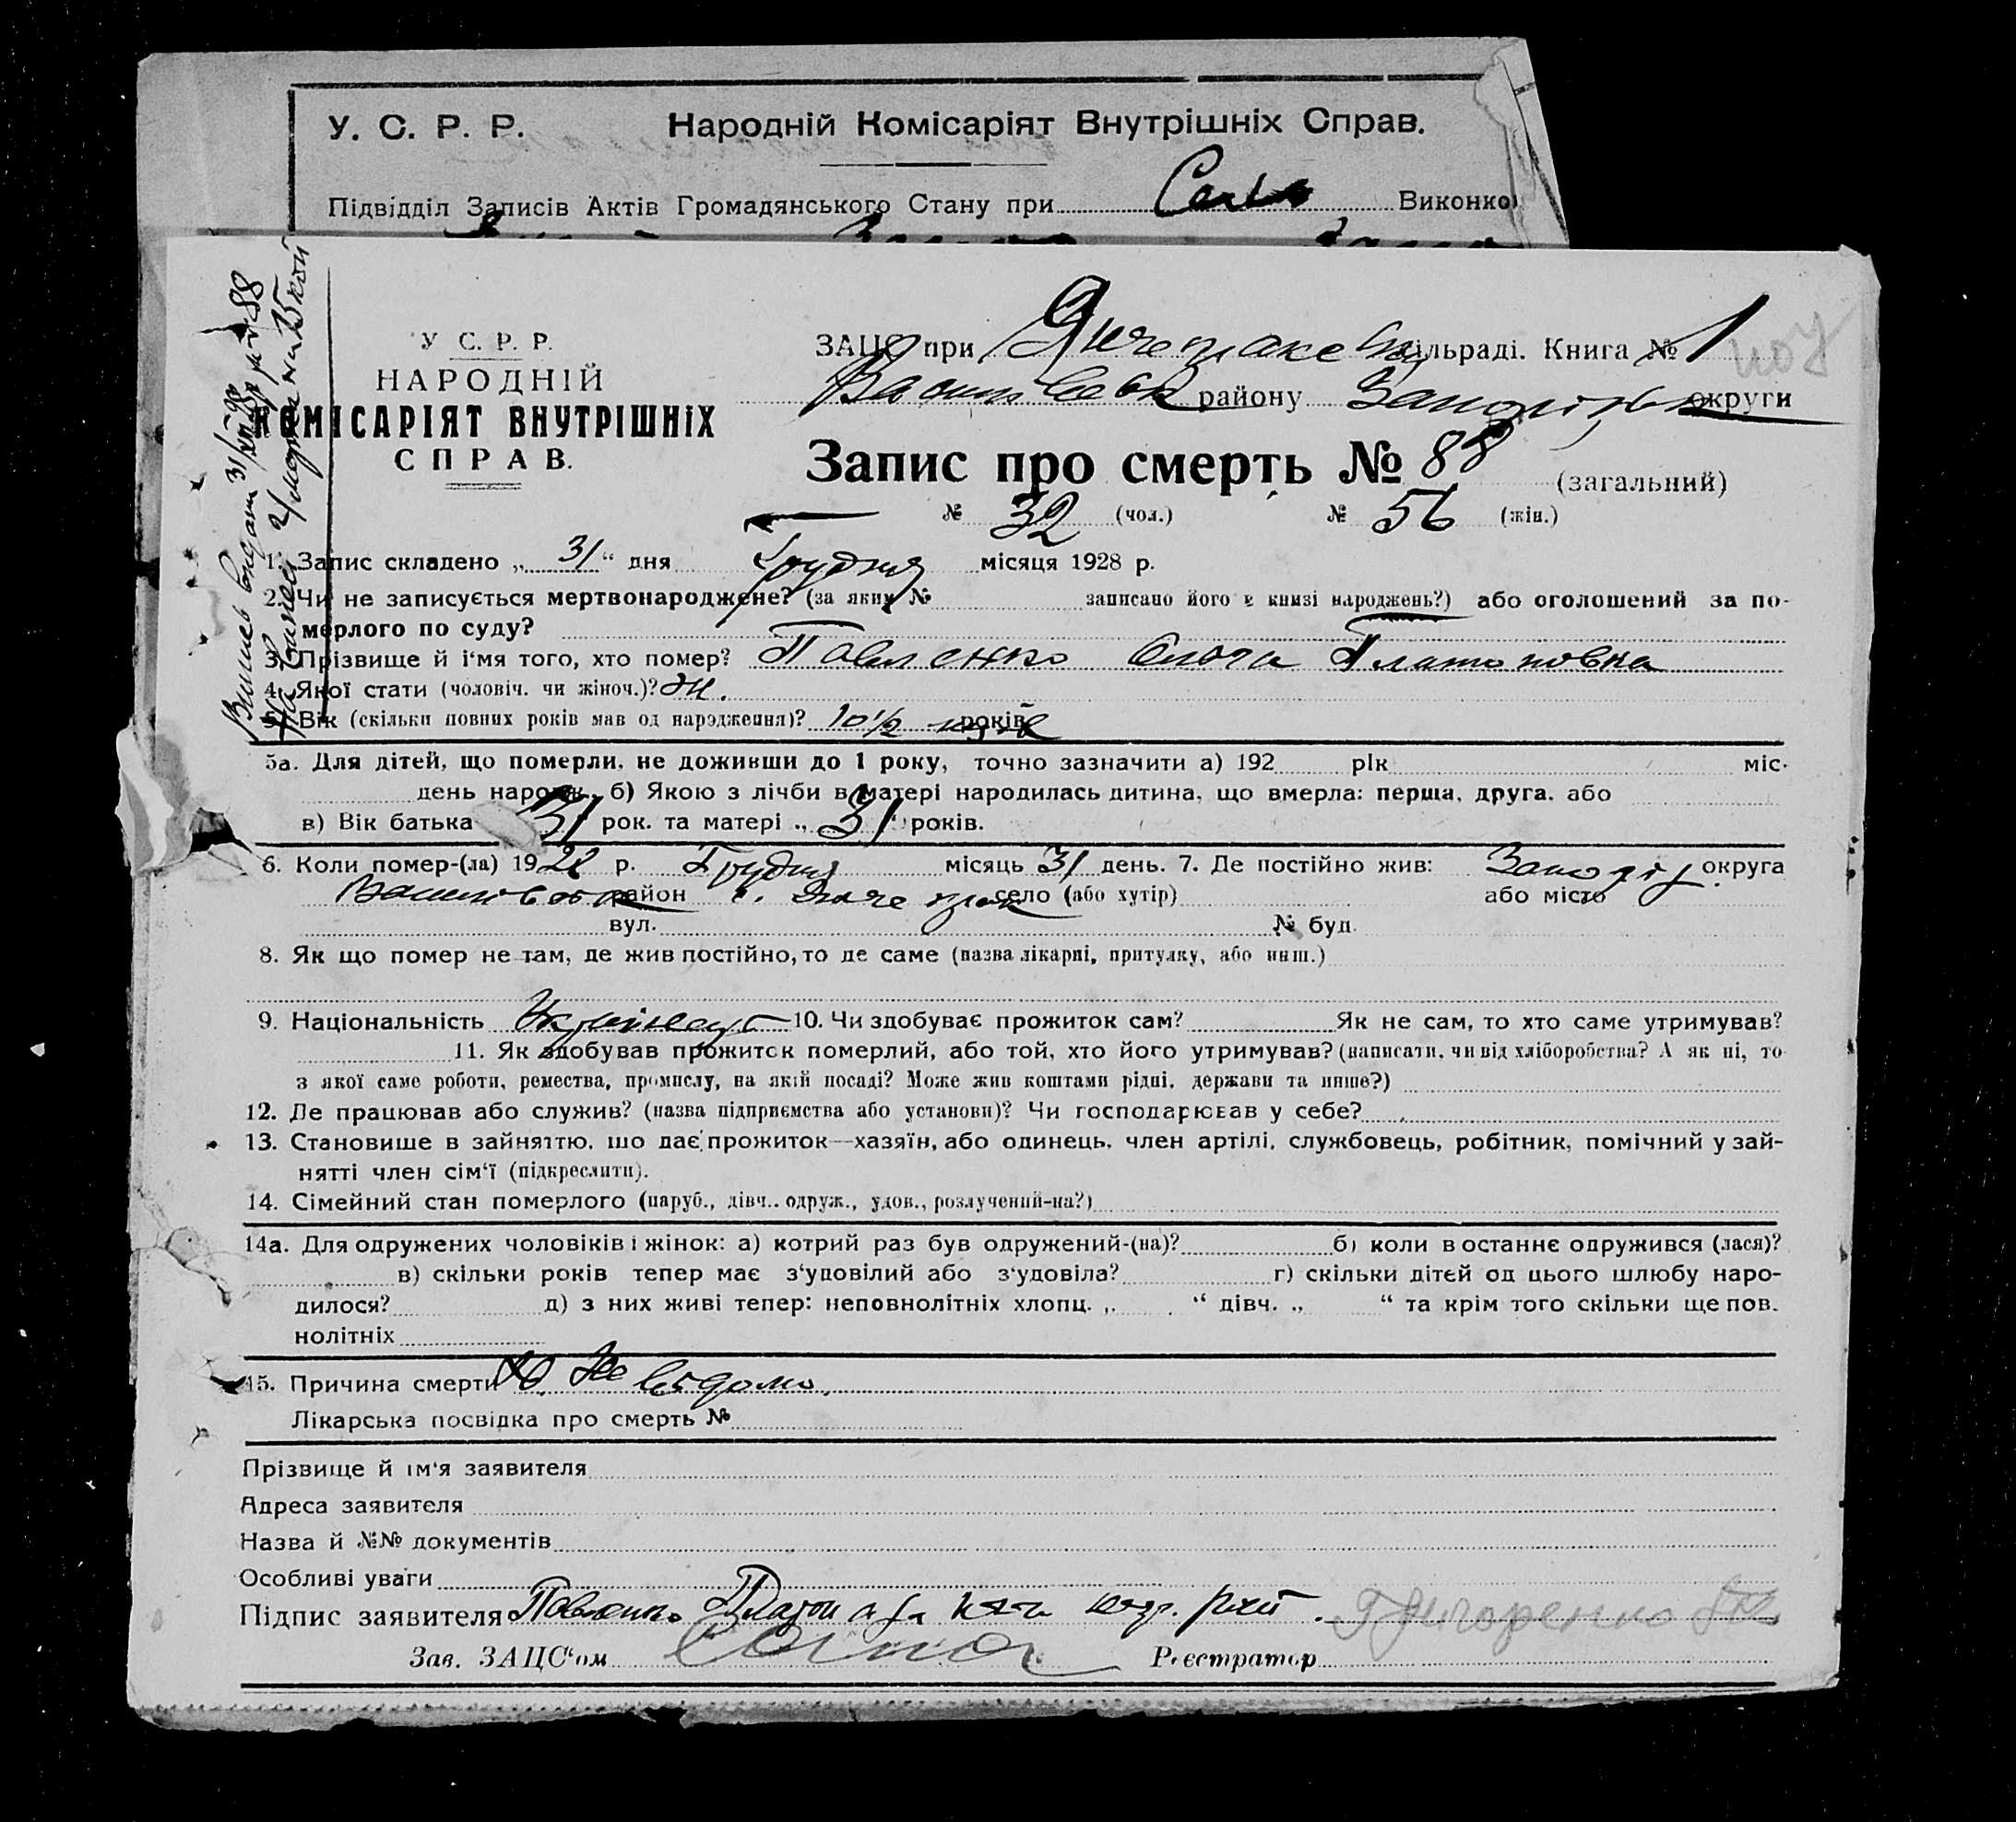 У. С. Р. Р. Народній Комісаріят Внутрішніх Справ.
Підвідділ Записів Актів Громадянського Стану при Виконко
У С. Р. Р.
НАРОДНІЙ
КОМІСАРІЯТ ВНУТРІШНІХ
СПРАВ.
ЗАЦС при сільраді. Книга № 1
району округи
Запис про смерть № 88 (загальний)
№ 32 (чол.) № 56 (жін.)
1. Запис складено „31“ дня Грудня місяця 1928 р.
2. Чи не записується мертвонароджене? (за яким № записано його в книзі народжень?) або оголошений за по-
мерлого по суду?
3. Прізвище й і‘мя того, хто помер? Павленко Ольга Платоновна
4. Якої стати (чоловіч. чи жіноч.)? Ж.
5. Вік (скільки повних років мав од народження)? 10½ років
5а. Для дітей, що померли, не доживши до 1 року, точно зазначити а) 192 рік міс.
день народж., б) Якою з лічби в матері народилась дитина, що вмерла: перша, друга, або
в) Вік батька 31 рок. та матері „31“ років.
6. Коли помер-(ла) 1928 р. Грудня місяць 31 день. 7. Де постійно жив: округа
район с. село (або хутір) або місто
вул. № буд.
8. Як що помер не там, де жив постійно, то де саме (назва лікарні, притулку, або инш.)
9. Національність 10. Чи здобуває прожиток сам? Як не сам, то хто саме утримував?
11. Як здобував прожиток померлий, або той, хто його утримував? (написати, чи від хліборобства? А як ні, то
з якої саме роботи, ремества, промислу, на якій посаді? Може жив коштами рідні, держави та инше?)
12. Де працював або служив? (назва підприємства або установи)? Чи господарював у себе?
13. Становище в зайняттю, що дає прожиток—хазяїн, або одинець, член артілі, службовець, робітник, помічний у зай-
нятті член сім‘ї (підкреслити).
14. Сімейний стан померлого (паруб., дівч.. одруж., удов., розлучений-на?)
14а. Для одружених чоловіків і жінок: а) котрий раз був одружений-(на)? б) коли в останнє одружився (лася)?
в) скільки років тепер має з‘удовілий або з‘удовіла? г) скільки дітей од цього шлюбу наро-
дилося? д) з них живі тепер: неповнолітніх хлопц. „ “ дівч. „ “ та крім того скільки ще пов.
нолітніх
15. Причина смерти Не відомо.
Лікарська посвідка про смерть №
Прізвище й ім‘я заявителя
Адреса заявителя
Назва й №№ документів
Особливі уваги
Підпис заявителя Павленко Платон
Зав. ЗАЦС“ом Реєстратор